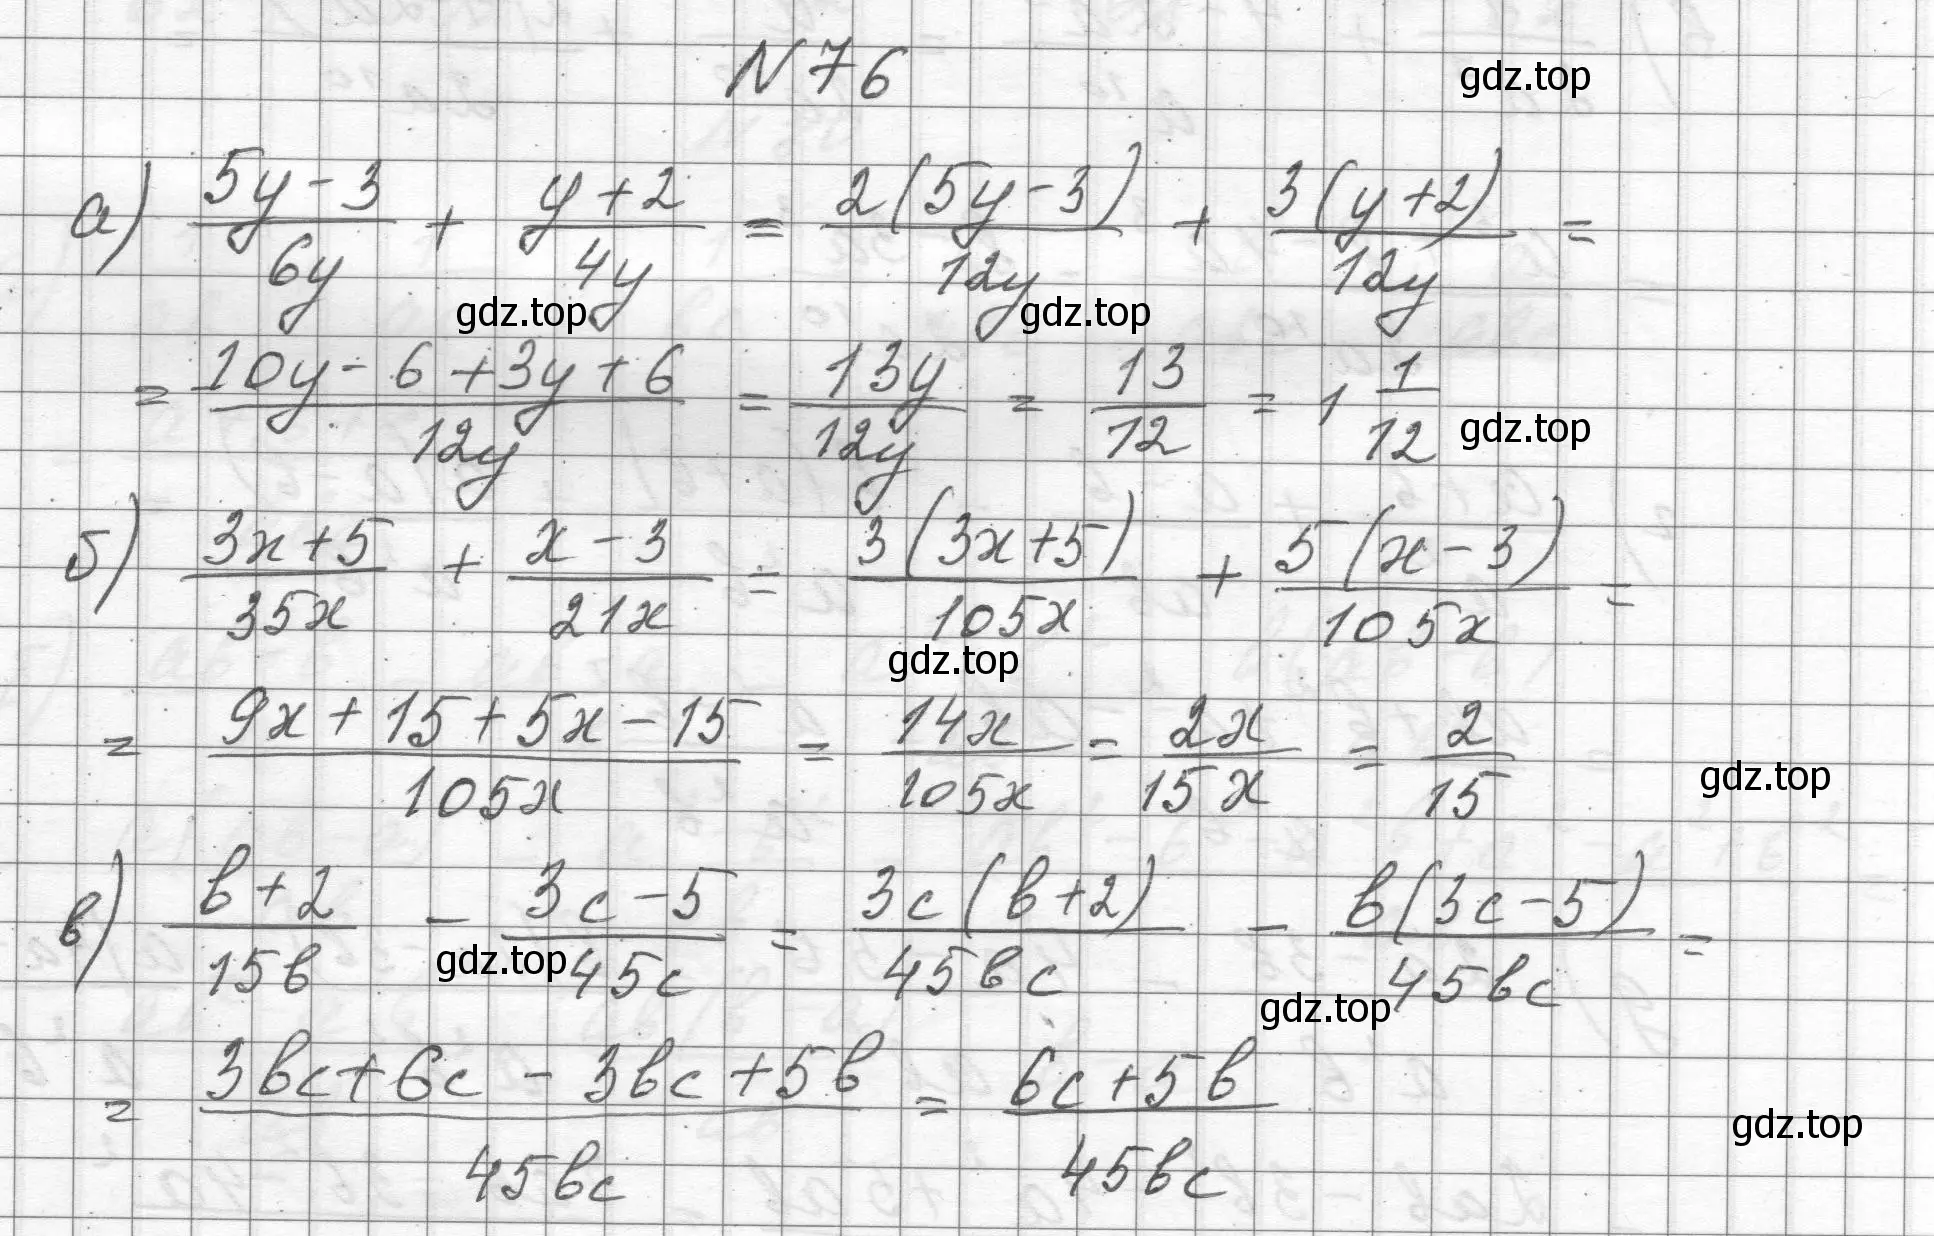 N 76
gdz.top
а) (5y-3)/(6y) + (y+2)/(4y) = (2(5y-3))/(12y) + (3(y+2))/(12y) =
gdz.top gdz.top
= (10y-6+3y+6)/(12y) = (13y)/(12y) = 13/12 = 1 1/12
gdz.top
б) (3x+5)/(35x) + (x-3)/(21x) = (3(3x+5))/(105x) + (5(x-3))/(105x) =
gdz.top
= (9x+15+5x-15)/(105x) = (14x)/(105x) = (2x)/(15x) = 2/15
gdz.top
в) (b+2)/(15b) - (3c-5)/(45c) = (3c(b+2))/(45bc) - (b(3c-5))/(45bc) =
gdz.top gdz.top
= (3bc+6c-3bc+5b)/(45bc) = (6c+5b)/(45bc)
gdz.top